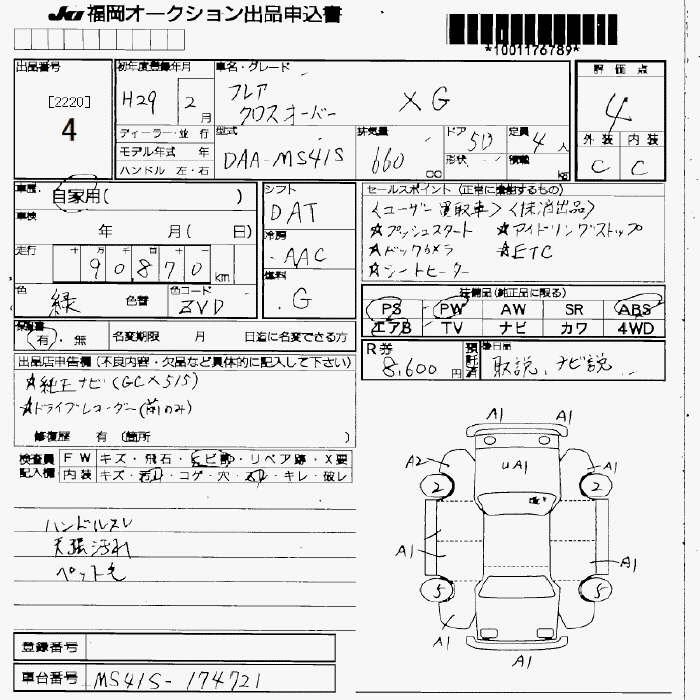 JU 福岡オークション出品申込書
*1001176789*
出品番号 [2220] 4
初年度登録年月 H29 2月
車名・グレード フレア クロスオーバー XG
評価点 4
外装 C 内装 C
ディーラー・並行
モデル年式 年
ハンドル 左・右
型式 DAA-MS41S
排気量 660 CC
ドア 5D
形状
定員 4人
積載 kg
車歴 自家用( )
車検 年 月( 日)
走行 90870 km
色 緑 色替 色コード ZVD
シフト DAT
冷房 AAC
燃料 G
セールスポイント (正常に機能するもの)
<ユーザー買取車> <抹消出品>
★プッシュスタート ★アイドリングストップ
★バックカメラ ★ETC
★シートヒーター
装備品(純正品に限る)
PS PW AW SR ABS
エアB TV ナビ カワ 4WD
保証書 有・無 名変期限 月 日迄に名変できる方
R券 8,600円 預託済
後日品 取説、ナビ説
出品店申告欄(不良内容・欠品など具体的に記入して下さい)
★純正ナビ(GCX515)
★ドライブレコーダー(前のみ)
修復歴 有 (箇所 )
検査員記入欄
FW キズ・飛石・ヒビ割・リペア跡・X要
内装 キズ・汚れ・コゲ・穴・スレ・キレ・破レ
ハンドルスレ
天張汚れ
ペット毛
A1 A1
A2 UA1 A1
2 2
A1 A1
5 5
A1 A1
A1
登録番号
車台番号 MS41S-174721